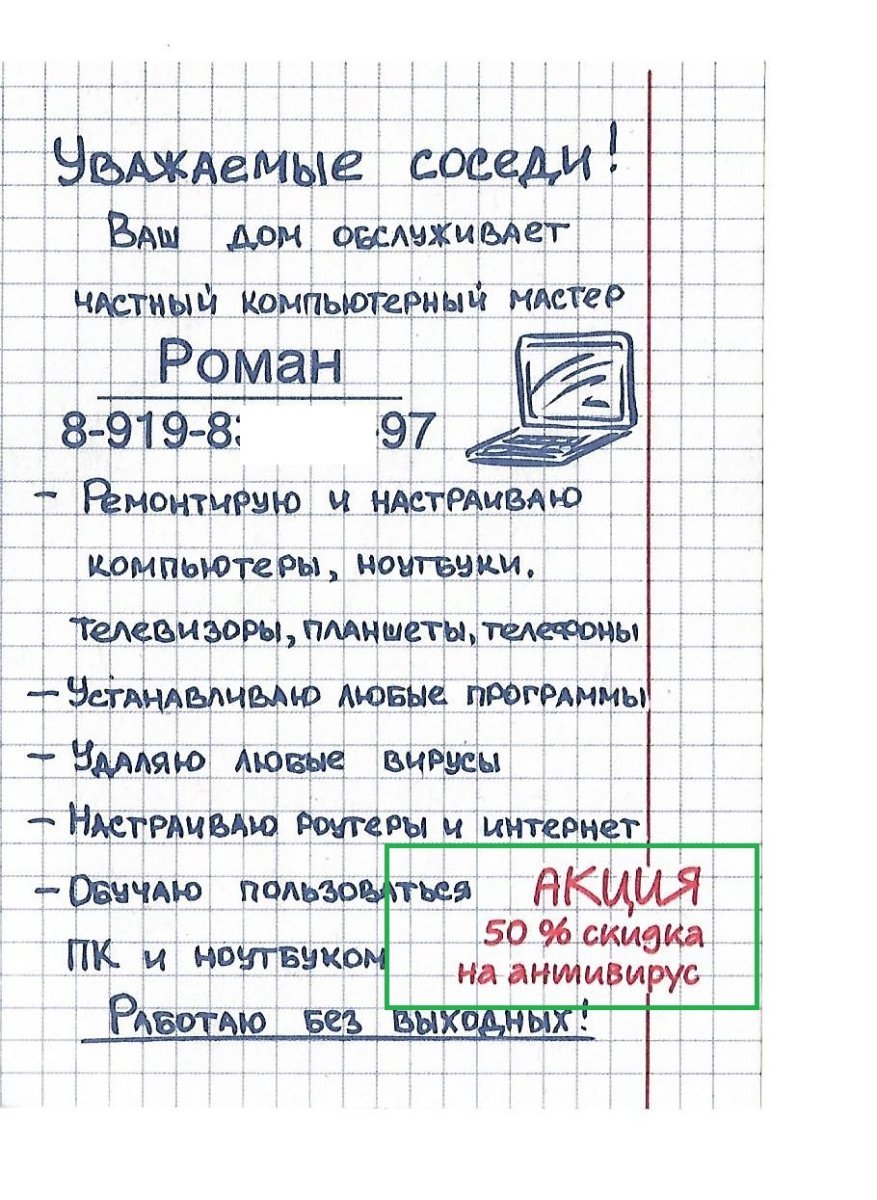 Уважаемые соседи!
Ваш дом обслуживает
частный компьютерный мастер
Роман
8-919-8 97
- Ремонтирую и настраиваю
компьютеры, ноутбуки.
телевизоры, планшеты, телефоны
- Устанавливаю любые программы
- Удаляю любые вирусы
- Настраиваю роутеры и интернет
- Обучаю пользоваться
ПК и ноутбуком
АКЦИЯ
50 % скидка
на антивирус
Работаю без выходных!